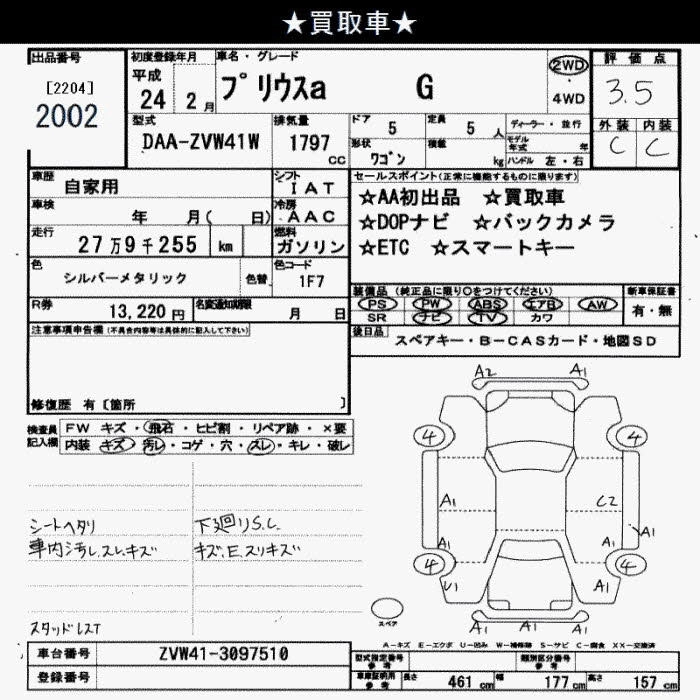 ★買取車★
出品番号
[2204]
2002
初度登録年月
平成
24 2月
車名・グレード
プリウスa G
2WD
4WD
評価点
3.5
外装 内装
C C
型式
DAA-ZVW41W
排気量
1797
cc
ドア 5
定員 5 人
ディーラー・並行
形状 ワゴン
積載 kg
モデル年式 年
ハンドル 左・右
車歴 自家用
シフト IAT
車検 年 月( 日)
冷房 AAC
走行 27万9千255 km
燃料 ガソリン
色 シルバーメタリック
色替
色コード 1F7
R券 13,220円
名変通知期限 月 日
セールスポイント(正常に機能するものに限ります)
☆AA初出品 ☆買取車
☆DOPナビ ☆バックカメラ
☆ETC ☆スマートキー
装備品 (純正品に限り○をつけてください)
新車保証書
PS PW ABS エアB AW
SR ナビ TV カワ
有・無
後日品 スペアキー・B-CASカード・地図SD
注意事項申告欄 (不具合内容等は具体的に記入して下さい)
修復歴 有〔箇所 〕
検査員記入欄
FW キズ・飛石・ヒビ割・リペア跡・×要
内装 キズ・汚レ・コゲ・穴・スレ・キレ・破レ
シートヘタリ
車内汚レ.スレ.キズ
スタッドレスT
下廻りS.C
キズ.E.スリキズ
A2 A1
4 4
A1 C2
A1 A1 A1
4 4
U1 A1
A1 A1
スペア
A-キズ E-エクボ U-凹み W-補修跡 S-サビ C-腐食 XX-交換済
車台番号 ZVW41-3097510
登録番号
型式指定番号 参考
類別区分番号 参考
車庫証明用 参考
長さ 461 cm
幅 177 cm
高さ 157 cm